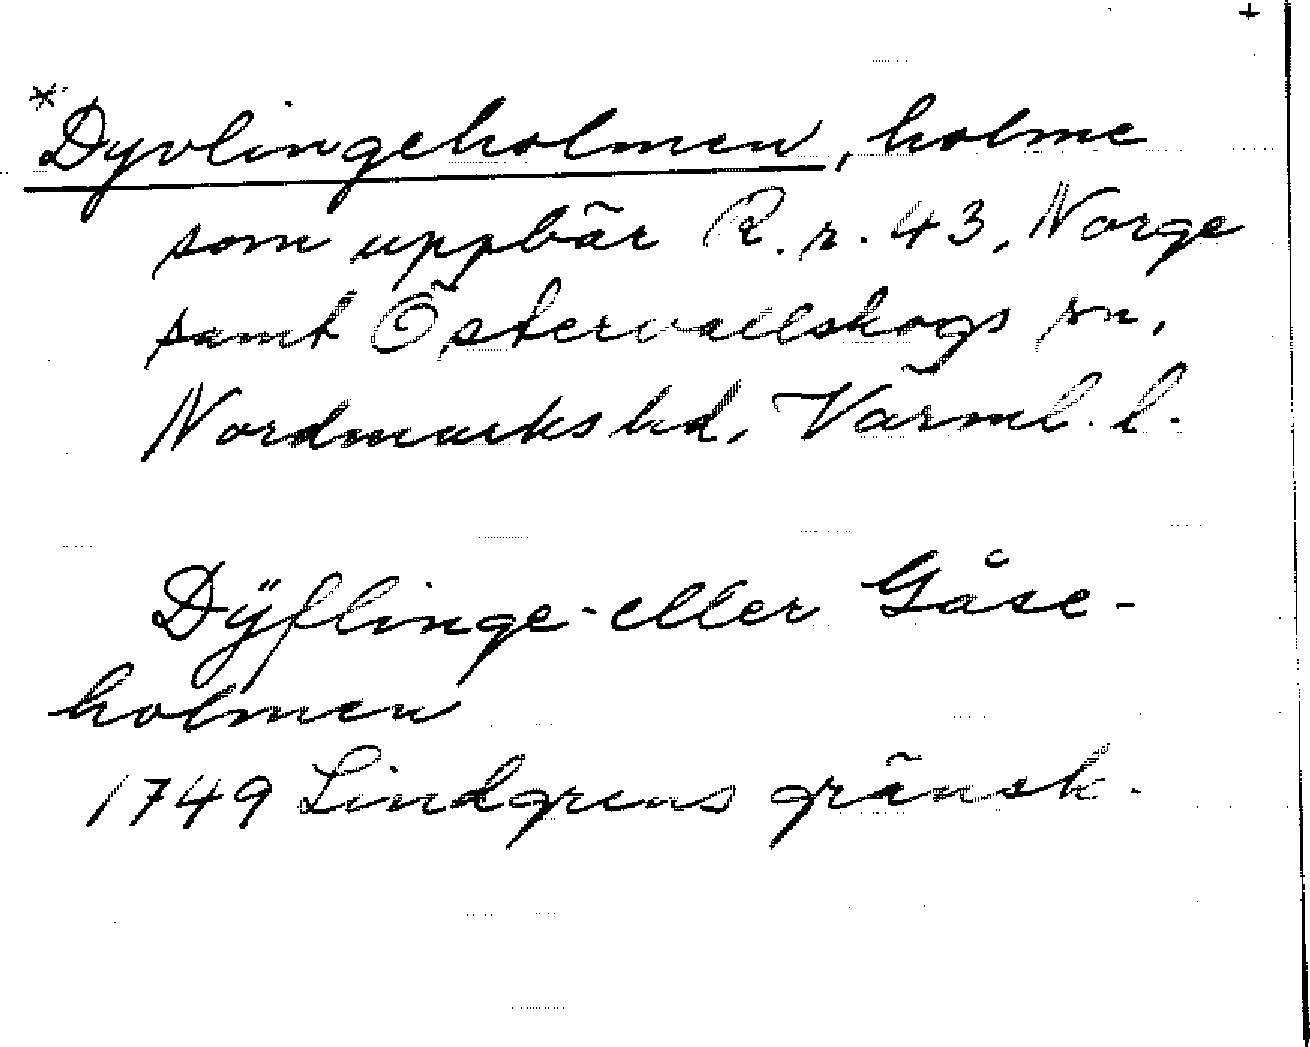 +
*Dyvlingeholmen, holme
som uppbär R.r. 43, Norge
samt Östervallskogs sn,
Nordmarks hd, Värml. l.
Dÿflinge- eller Gåse-
holmen
1749 Lindgrens gränsk.